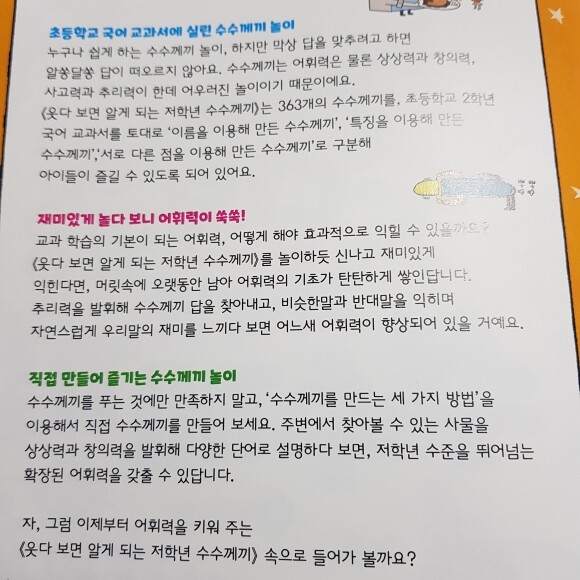 초등학교 국어 교과서에 실린 수수께끼 놀이
누구나 쉽게 하는 수수께끼 놀이, 하지만 막상 답을 맞추려고 하면
알쏭달쏭 답이 떠오르지 않아요. 수수께끼는 어휘력은 물론 상상력과 창의력,
사고력과 추리력이 한데 어우러진 놀이이기 때문이에요.
《웃다 보면 알게 되는 저학년 수수께끼》는 363개의 수수께끼를, 초등학교 2학년
국어 교과서를 토대로 '이름을 이용해 만든 수수께끼', '특징을 이용해 만든
수수께끼','서로 다른 점을 이용해 만든 수수께끼'로 구분해
아이들이 즐길 수 있도록 되어 있어요.
재미있게 놀다 보니 어휘력이 쑥쑥!
교과 학습의 기본이 되는 어휘력, 어떻게 해야 효과적으로 익힐 수 있을까요?
《웃다 보면 알게 되는 저학년 수수께끼》를 놀이하듯 신나고 재미있게
익힌다면, 머릿속에 오랫동안 남아 어휘력의 기초가 탄탄하게 쌓인답니다.
추리력을 발휘해 수수께끼 답을 찾아내고, 비슷한말과 반대말을 익히며
자연스럽게 우리말의 재미를 느끼다 보면 어느새 어휘력이 향상되어 있을 거예요.
직접 만들어 즐기는 수수께끼 놀이
수수께끼를 푸는 것에만 만족하지 말고, '수수께끼를 만드는 세 가지 방법'을
이용해서 직접 수수께끼를 만들어 보세요. 주변에서 찾아볼 수 있는 사물을
상상력과 창의력을 발휘해 다양한 단어로 설명하다 보면, 저학년 수준을 뛰어넘는
확장된 어휘력을 갖출 수 있답니다.
자, 그럼 이제부터 어휘력을 키워 주는
《웃다 보면 알게 되는 저학년 수수께끼》 속으로 들어가 볼까요?